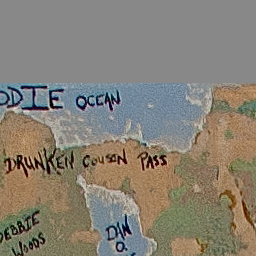 ODIE OCEAN
DRUNKEN COUSIN PASS
DEBBIE
WOODS